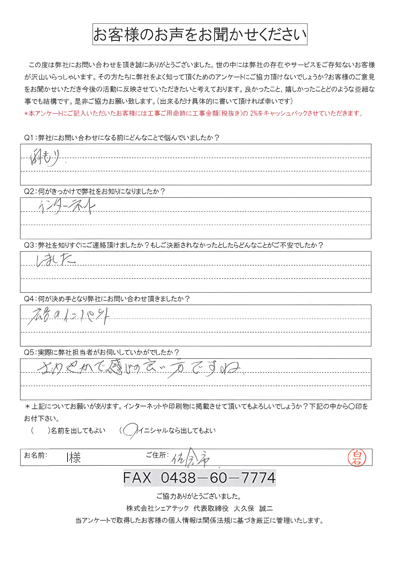 お客様のお声をお聞かせください
この度は弊社にお問い合わせを頂き誠にありがとうございました。世の中には弊社の存在やサービスをご存知ないお客様
が沢山いらっしゃいます。その方たちに弊社をよく知って頂くためのアンケートにご協力頂けないでしょうか?お客様のご意見
をお聞かせいただき今後の活動に反映させていただきたいと考えております。良かったこと、嬉しかったことどのような些細な
事でも結構です。是非ご協力お願い致します。(出来るだけ具体的に書いて頂ければ幸いです)
*本アンケートにご記入いただいたお客様には工事ご用命時に工事金額(税抜き)の 2%をキャッシュバックさせていただきます。
Q1:弊社にお問い合わせになる前にどんなことで悩んでいましたか?
雨もり
Q2:何がきっかけで弊社をお知りになりましたか?
インターネット
Q3:弊社を知りすぐにご連絡頂けましたか?もしご決断されなかったとしたらどんなことがご不安でしたか?
しました
Q4:何が決め手となり弊社にお問い合わせ頂きましたか?
Q5:実際に弊社担当者がお伺いしていかがでしたか?
さわやかで感じの良い方ですね
*上記についてお願いがあります。インターネットや印刷物に掲載させて頂いてもよろしいでしょうか?下記の中から〇印を
お付下さい。
( )名前を出してもよい (〇)イニシャルなら出してもよい
お名前: I様 ご住所: 市 白石
FAX 0438-60-7774
ご協力ありがとうございました。
株式会社シェアテック 代表取締役 大久保 誠二
当アンケートで取得したお客様の個人情報は関係法規に基づき厳正に管理いたします。